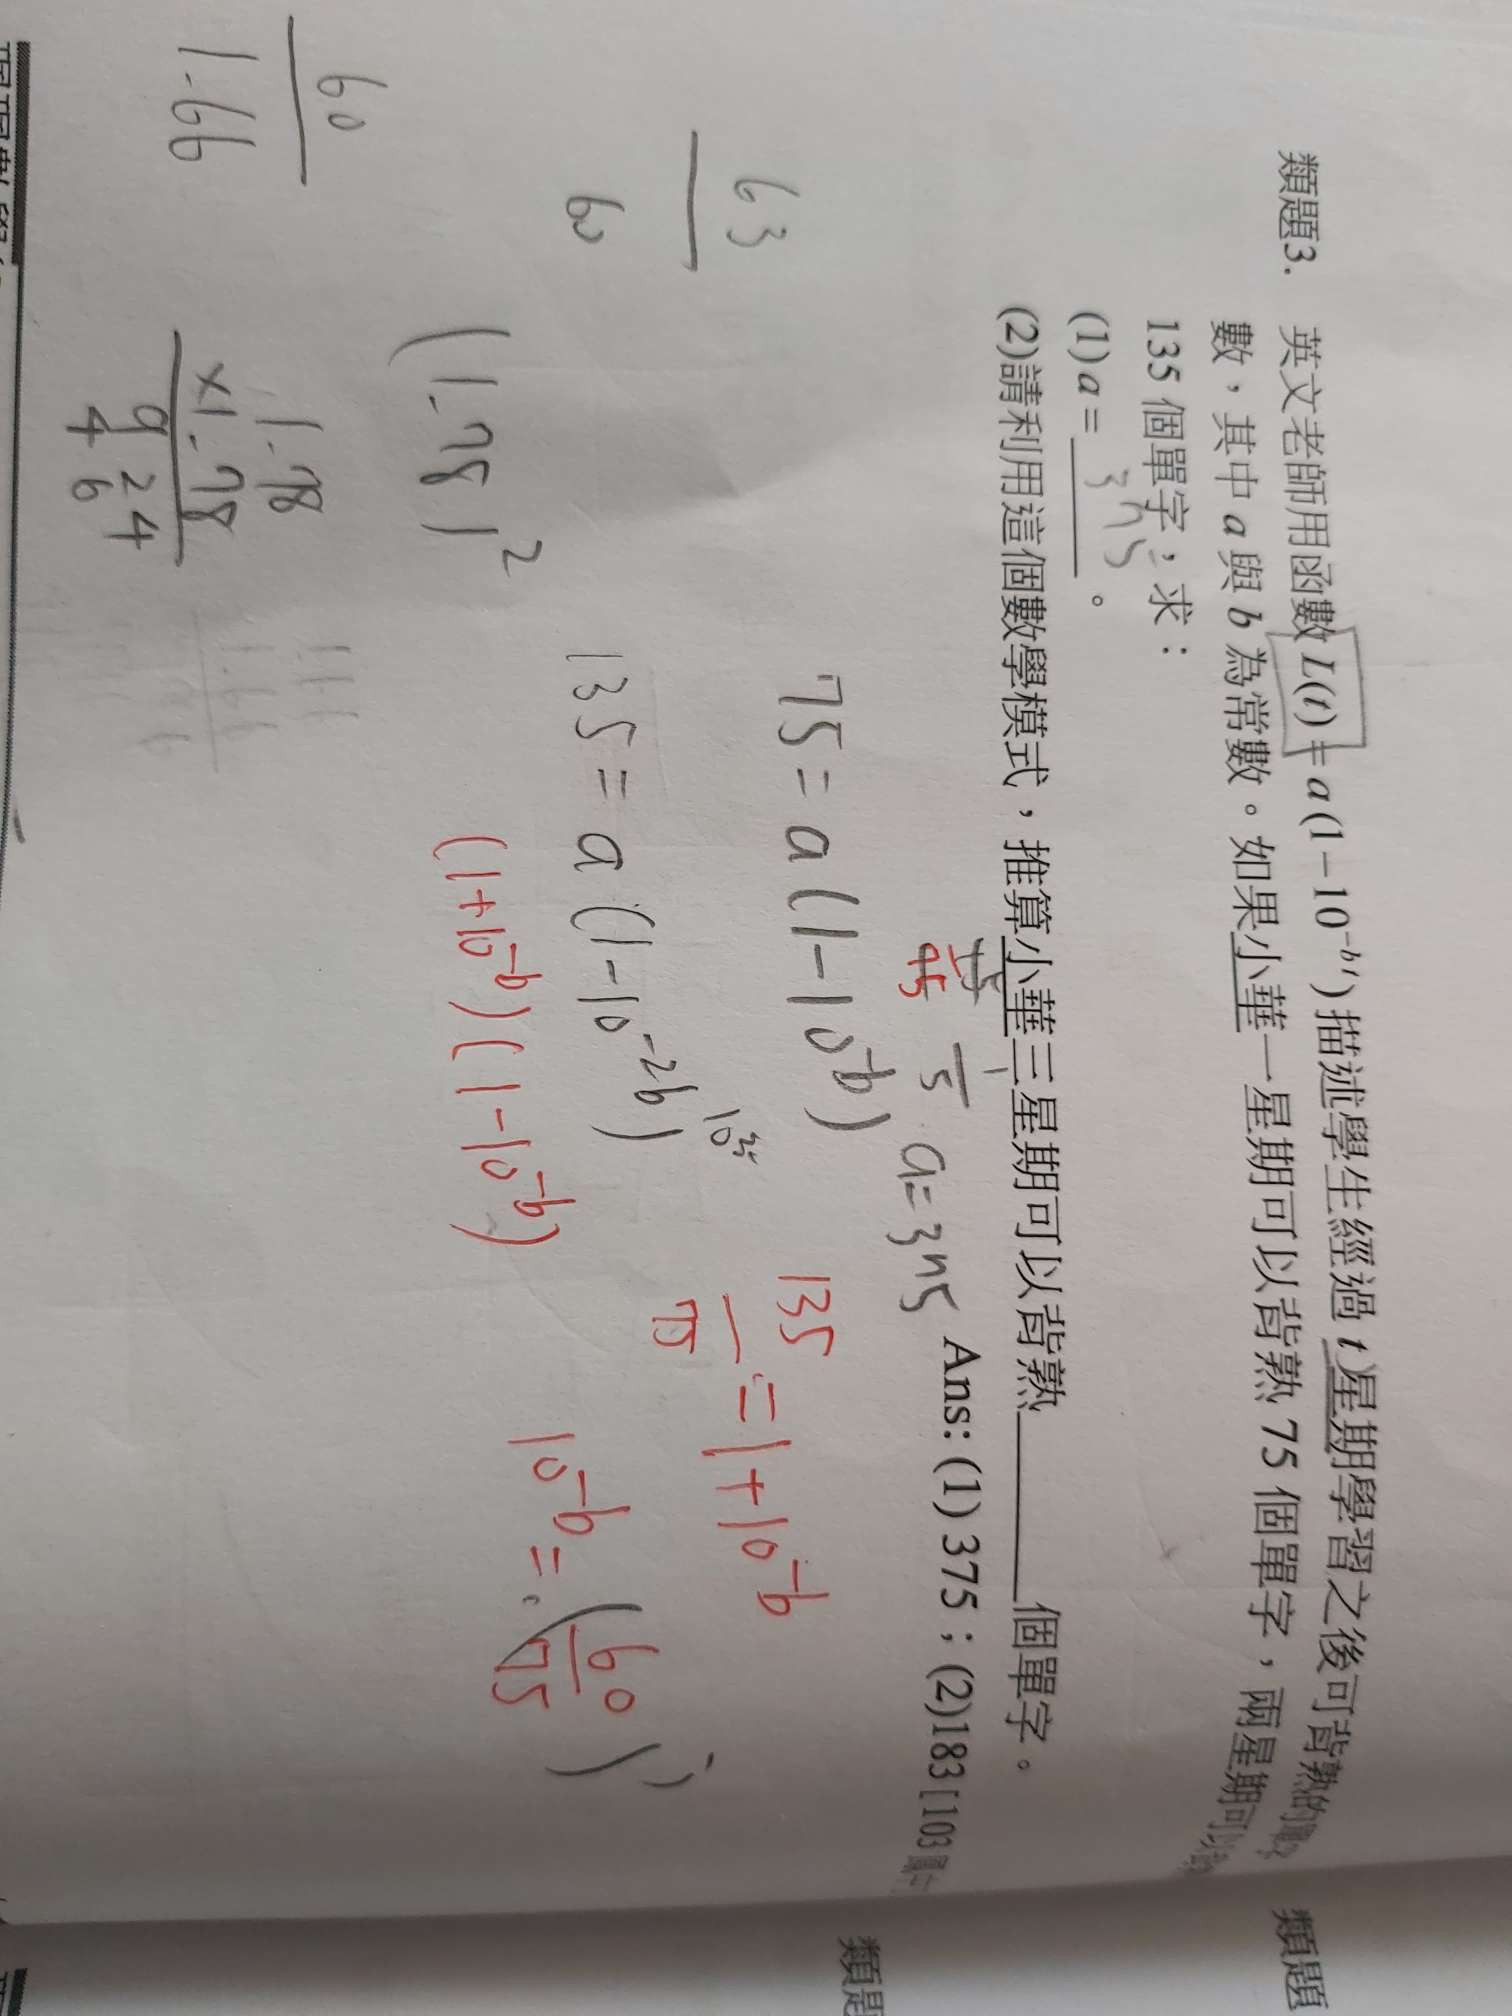 類題3. 英文老師用函數 L(t) = a(1-10^{-bt}) 描述學生經過 t 星期學習之後可背熟的單字
數,其中 a 與 b 為常數。如果小華一星期可以背熟 75 個單字,兩星期可以
135 個單字,求:
(1) a = 375 。
(2)請利用這個數學模式,推算小華三星期可以背熟 個單字。
Ans: (1) 375;(2)183 [103
1/5 a=375
75 = a(1-10^{-b})
135 = a(1-10^{-2b})
(1+10^{-b})(1-10^{-b})
135/75 = 1+10^{-b}
10^{-b} = (60/75)
63
60
60
1.66
(1.78)²
1.78
×1.78
類題
類題